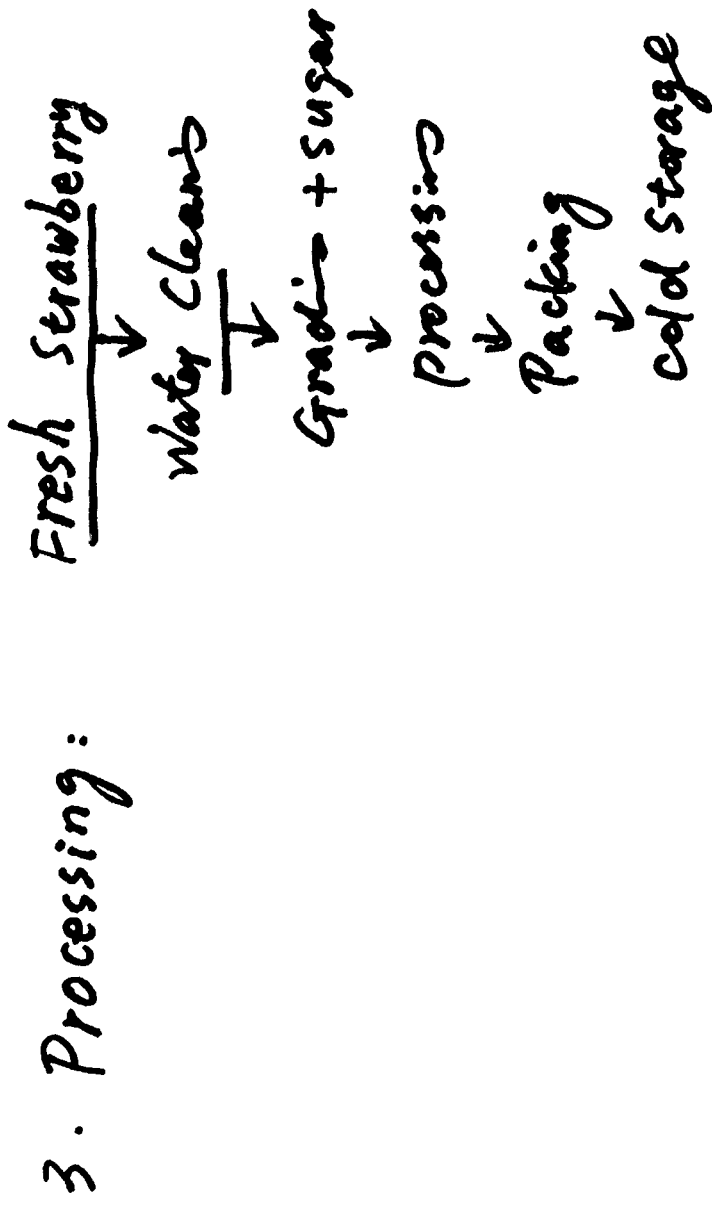 3. Processing:
Fresh Strawberry
↓
Water Cleaning
↓
Grading + Sugar
↓
Processing
↓
Packing
↓
Cold Storage